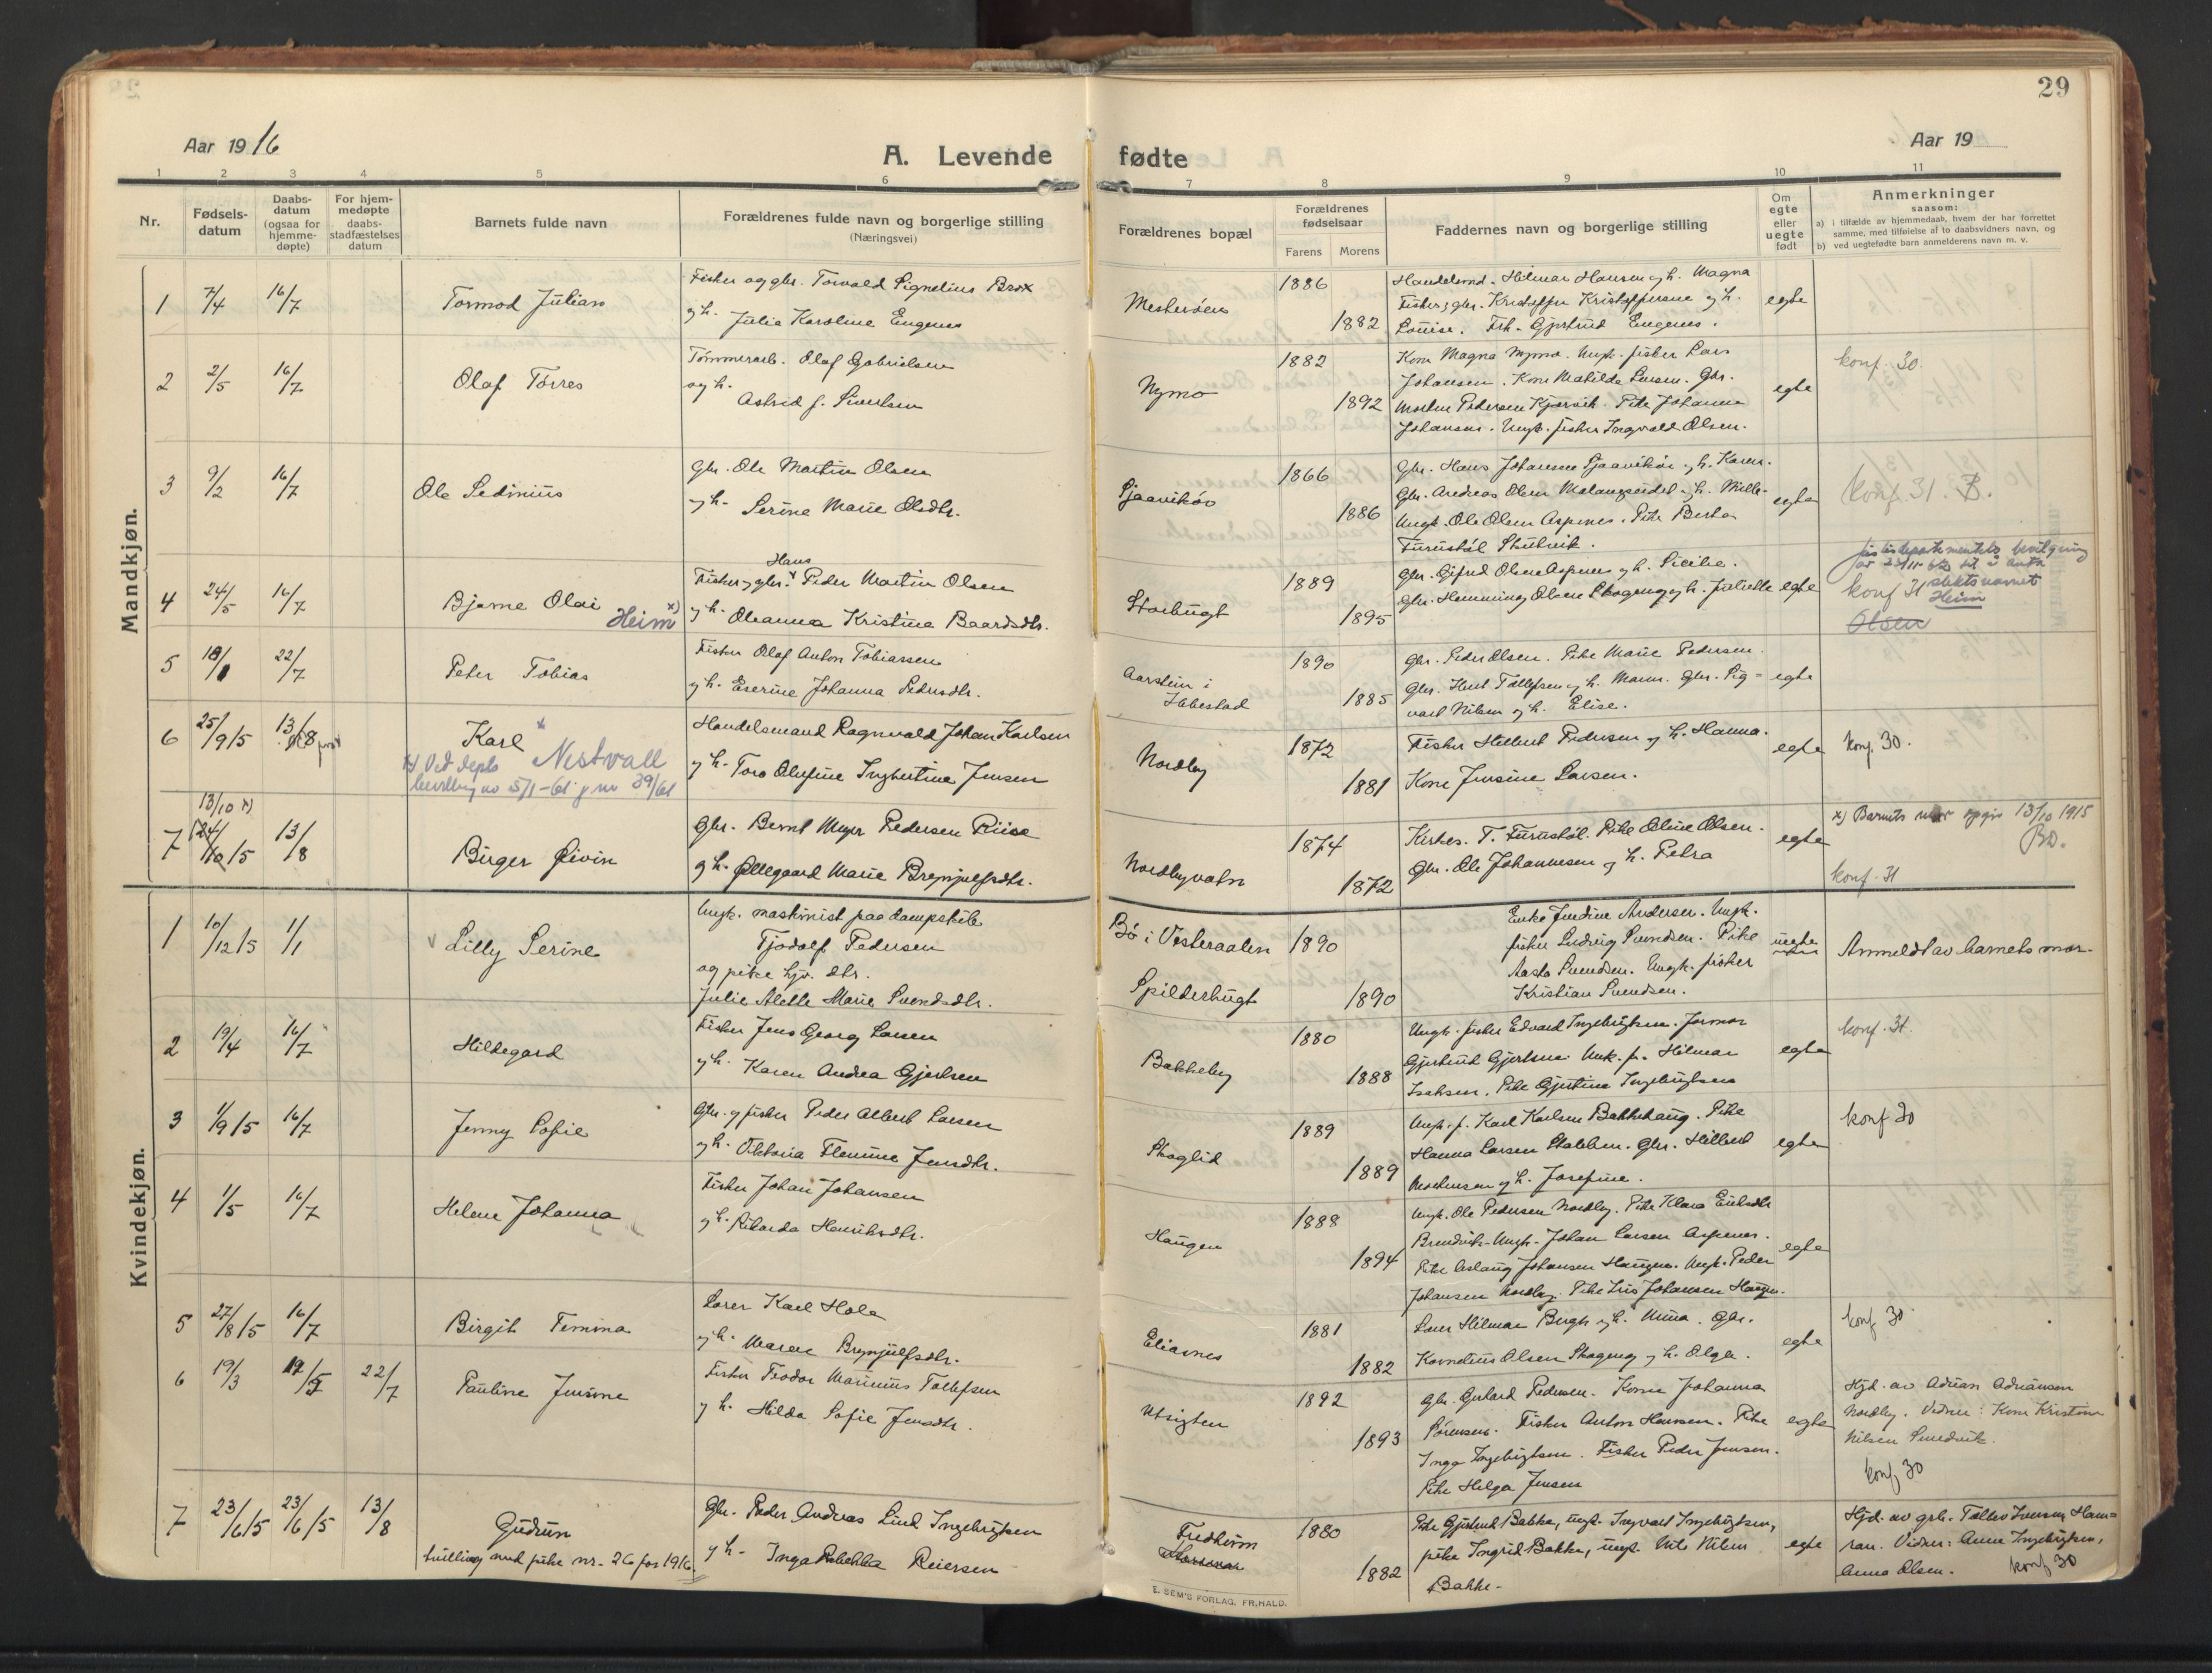 29
Aar 1916
A. Levende
fødte
Aar 19
1 2 3 4 5 6 7 8 9 10 11
Nr.
Fødsels-
datum
Daabs-
datum
(ogsaa for
hjemme-
døpte)
For hjem-
medøpte
daabs-
stadfæstelses
datum
Barnets fulde navn
Forældrenes fulde navn og borgerlige stilling
(Næringsvei)
Forældrenes bopæl
Forældrenes
fødselsaar
Farens Morens
Faddernes navn og borgerlige stilling
Om
egte
eller
uegte
født
Anmerkninger
saasom:
a) i tilfælde av hjemmedaab, hvem der har forrettet
samme, med tilføielse af to daabsvidners navn, og
b) ved uegtefødte barn anmelderens navn m. v.
Mandkjøn.
1 7/4 16/7 Tormod Julian
Fisker og gbr. Torvald Signelius Brox
og h. Julie Karoline Eugenes
Mestervik
1886
1882
Handelsmd. Hilmar Hansen og h. Magna
Fisker og gbr. Kristoffer Kristoffersen og h.
Louise. Frk. Gjertrud Eugenes.
egte
2 2/5 16/7 Olaf Torres
Tømmerarb. Olaf Gabrielsen
og h.
Astrid f. Sivertsen
Nymo
1882
1892
Kone Magna Nymo. Ungk. fisker Lars
Johansen. Kone Matilde Larsen. Gbr.
Morten Pedersen Kjærvik. Pike Johanna
Johansen. Ungk. fisker Ingvald Olsen.
egte
konf. 30.
3 9/2 16/7 Ole Sedinius
Gbr. Ole Martin Olsen
og h. Serine Marie Olsdtr.
Sjaavikør
1866
1886
Gbr. Hans Johansen Sjaavikør og h. Karen.
Gbr. Andreas Olsen Malangseidet og h. Mille.
Ungk. Ole Olsen Aspenes. Pike Berta
Furustøl
egte
konf. 31. B.
4 24/5 16/7 Bjarne Olai
Heim x)
Hans
Fisker og gbr. Peder Martin Olsen
og h. Oleanna Kristine Baardsdtr.
Storbugt
1889
1895
Gbr. Olsen Aspenes og h. Sicilie.
Gbr. Hemming Olsen Skogeng og h. Juliette
egte
justisdepartementets bevilgning
slektsnavnet
konf 31
Heim
Olsen
5 18/1 22/7 Peter Tobias
Fisker Olaf Anton Tobiassen
og h. Eserine Johanna Pedersdtr.
Aarstein i
Ibbestad
1890
1885
Gbr. Peder Olsen. Pike Marie Pedersen.
Gbr. Knut Tollefsen og h. Maren. Gbr. Sig-
vart Nilsen og h. Elise.
egte
6 25/9 15 13/8 Karl x
Nestvall
x) Ved depts
bevilling av 5/1-61 j nr 39/61
Handelsmand Ragnvald Johan Karlsen
og h. Tora Olufine Ingbertine Jensen
Nordby
1872
1881
Fisker Hilbert Pedersen og h. Hanna.
Kone Jensine Larsen.
egte
konf. 30.
13/10 x)
7 24/10 15 13/8 Birger Øivin
Gbr. Bernt Meyer Pedersen Riise
og h. Øllegaard Marie Brynjulfsdtr.
Nordbyvatn
1874
1872
Kirkes. T. Furustøl. Pike Oline Olsen.
Gbr. Ole Johannesen og h. Petra
egte
x) Barnets mor opgir 13/10 1915
BD.
konf. 31
Kvindekjøn.
1 10/12 15 1/1 Lilly Serine
Ungk. maskinist paa dampskib
Tjodolf Pedersen
og pike hjv. dtr.
Julie Alette Marie Svendsdtr.
Bø i Vesteraalen
Spilderbugt
1890
1890
Enke Jendine Andersen. Ungk.
fisker Ludvig Svendsen. Pike
Aasta Svendsen. Ungk. fisker
Kristian Svendsen.
uegte
Anmeldt av barnets mor.
2 19/4 16/7 Hildegard
Fisker Jens Georg Larsen
og h. Karen Andrea Gjertsen
Bakkeby
1880
1888
Ungk. fisker Edvard Ingebrigtsen. Jormor
Gjertrud Gjertsen. Unk. f. Hilmar
Isaksen. Pike Gjertine Ingebrigtsen
egte
konf. 31.
3 1/9 15 16/7 Jenny Sofie
Gbr. og fisker Peder Albert Larsen
og h. Oktovia Flemine Jensdtr.
Skoglid
1889
1889
Ungk. f. Karl Karlsen Bakkehaug. Pike
Hanna Larsen Slabben. Gbr. Hilbert
Mortensen og h. Josefine.
egte
konf 30
4 1/5 16/7 Helene Johanna
Fisker Johan Johansen
og h. Rikarda Henriksdtr.
Haugen
1888
1894
Ungk. Ole Pedersen Nordby. Pike Klara Eriksdtr
Brendvik. Ungk. Johan Larsen Aspenes.
Pike Aslaug Johansen Haugen. Ungk. Peder
Johansen Nordby. Pike Johansen Haugen.
egte
5 27/8 15 16/7 Birgit Temina
Lærer Karl Hole
og h. Maren Brynjulfsdtr.
Eliasnes
1881
1882
Lærer Hilmar Bergh og h. Minna. Gbr.
Kornelius Olsen Skogeng og h. Olga.
egte
konf 30.
6 19/3 19/5 22/7 Pauline Jensine
Fisker Teodor Marinius Tollefsen
og h. Hilda Sofie Jensdtr.
Utsigten
1892
1893
Gbr. Gerhard Pedersen. Kone Johanna
Sørensen. Fisker Anton Hansen. Pike
Inga Ingebrigtsen. Fisker Peder Jensen.
Pike Helga Jensen
egte
Hjd. av Adrian Adriansen
Nordby. Vidner: Kone Kristine
Nilsen Sundvik.
konf 30
7 23/6 15 23/6 15 13/8 Gudrun
tvilling med pike nr. 26 for 1916.
Gbr. Peder Andreas Lind Ingebrigtsen
og h. Inga Rebekka Reiersen
Fredheim
1880
1882
Pike Gjertrud Bakke, ungk. Ingvart Ingebrigtsen,
pike Ingrid Bakke, ungk. Nils Nilsen
Bakke.
egte
Hjd. av grb. Tollev Iversen, Ham-
ran. Vidner: Anne Ingebrigtsen,
Anna Olsen. konf 30
E. SEM'S FORLAG, FR.HALD.